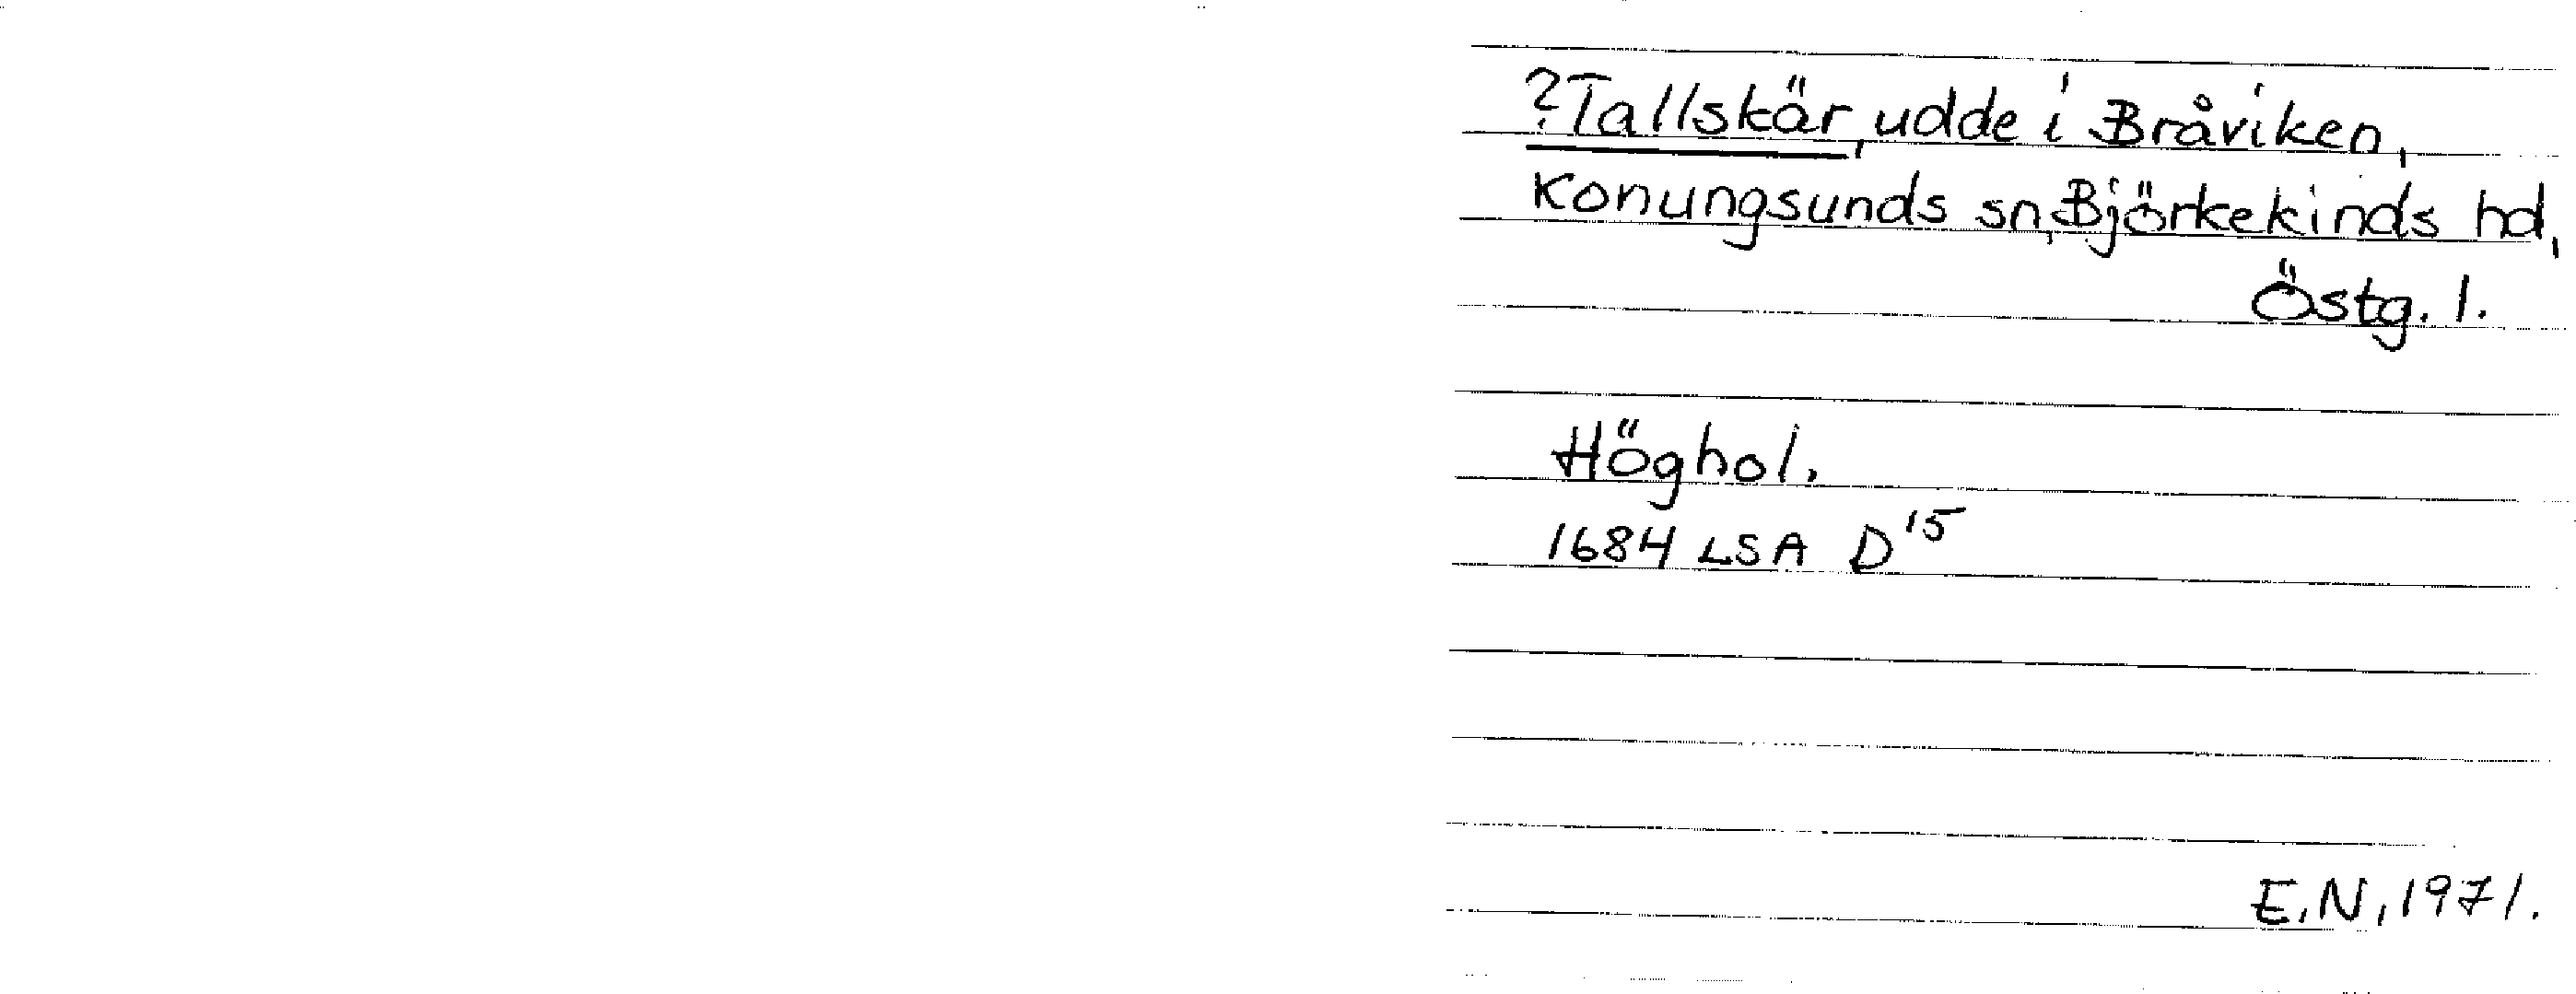 ?Tallskär, udde i Bråviken,
Konungsunds sn, Björkekinds hd,
Östg. l.
Höghol.
1684 LSA D15
E.N, 1971.